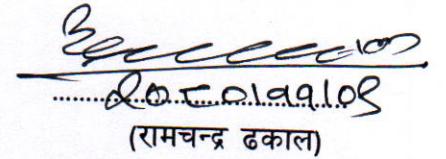 २०८०।११।०९
(रामचन्द्र ढकाल)